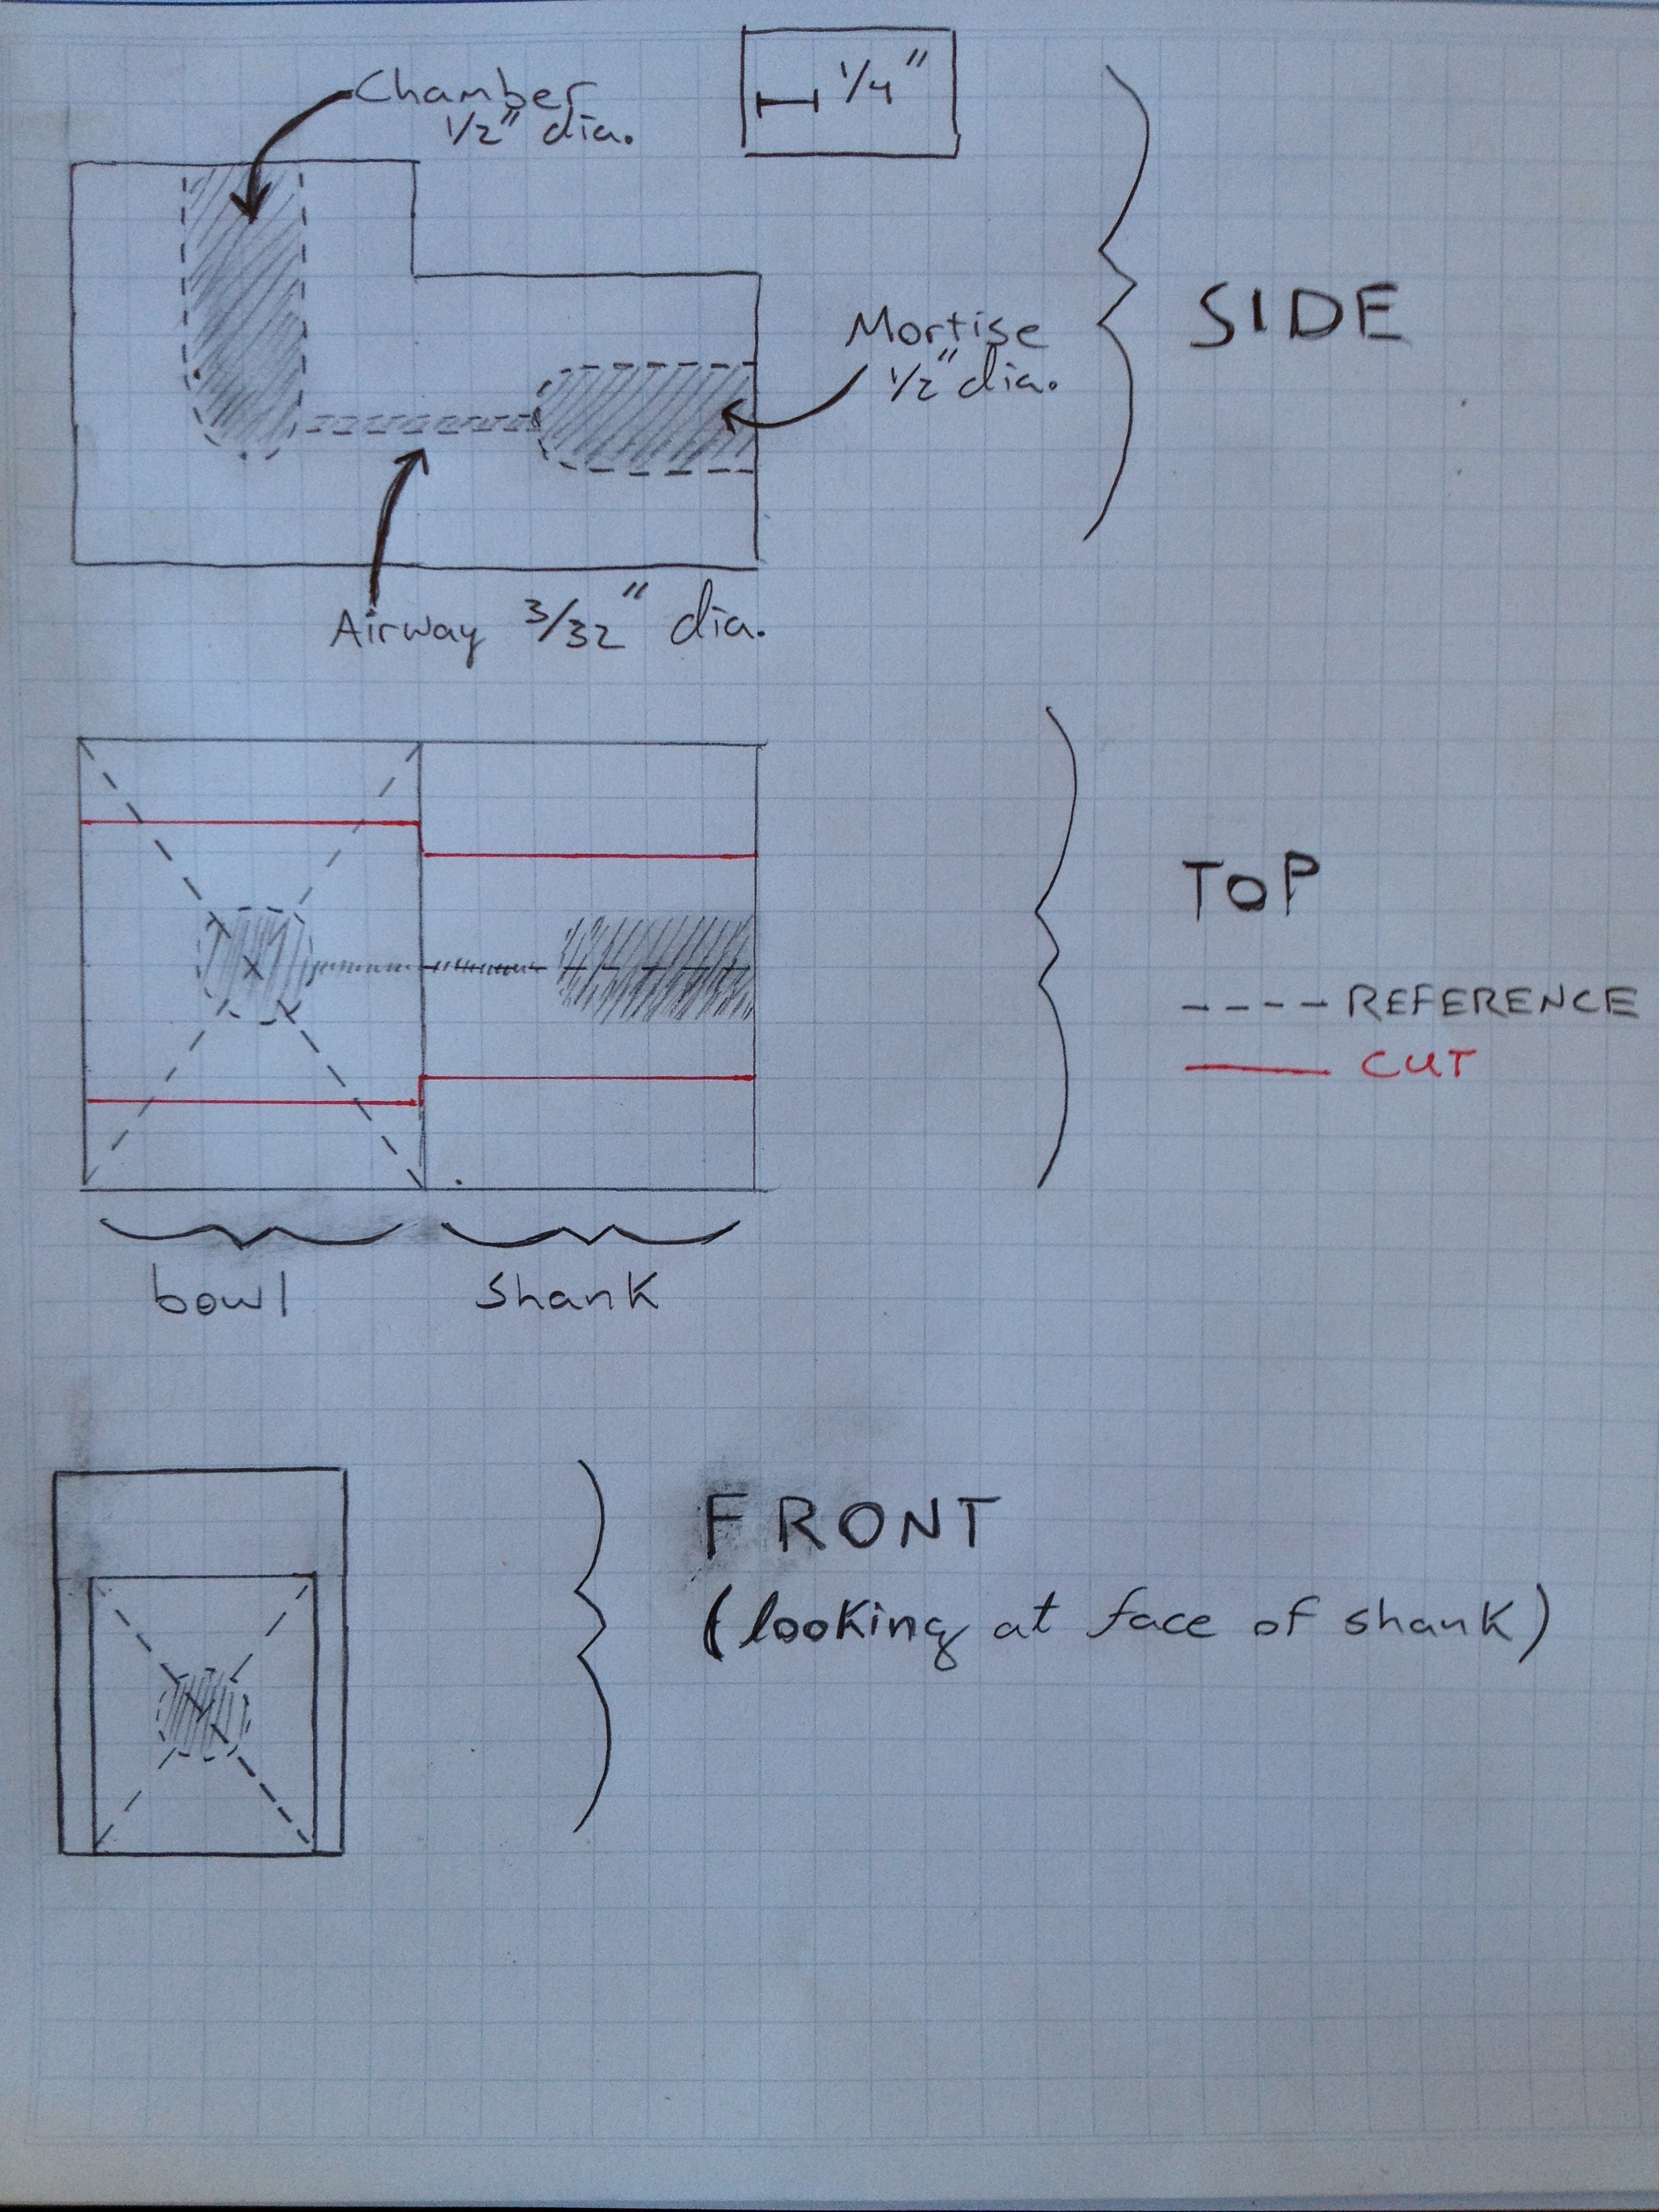 Chamber
1/2" dia.
1/4"
SIDE
Mortise
1/2" dia.
Airway 3/32" dia.
TOP
---- REFERENCE
CUT
bowl
shank
FRONT
(looking at face of shank)